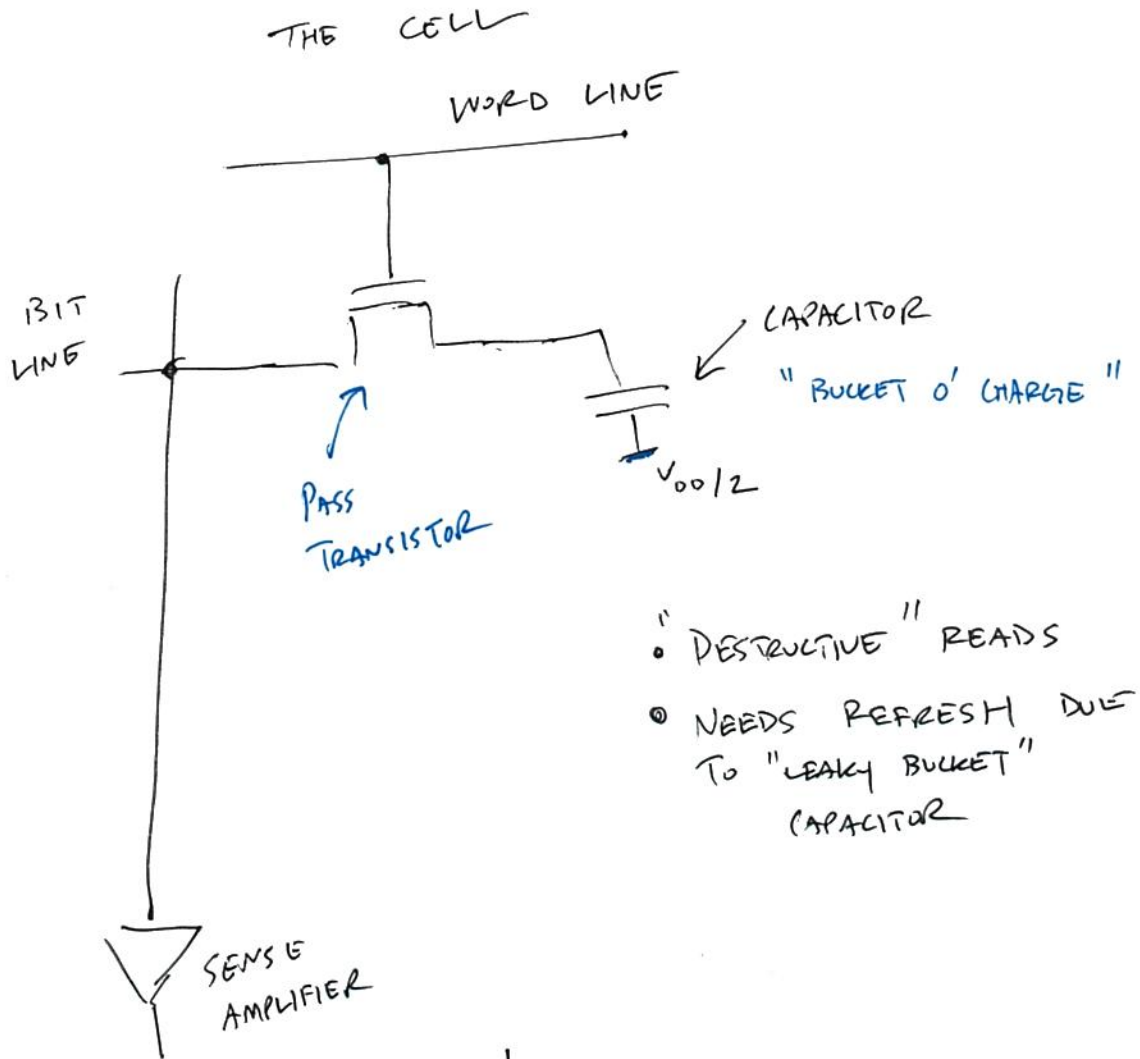 THE CELL
WORD LINE
BIT
LINE
CAPACITOR
"BUCKET O' CHARGE"
VDD/2
PASS
TRANSISTOR
• "DESTRUCTIVE" READS
• NEEDS REFRESH DUE
TO "LEAKY BUCKET"
CAPACITOR
SENSE
AMPLIFIER